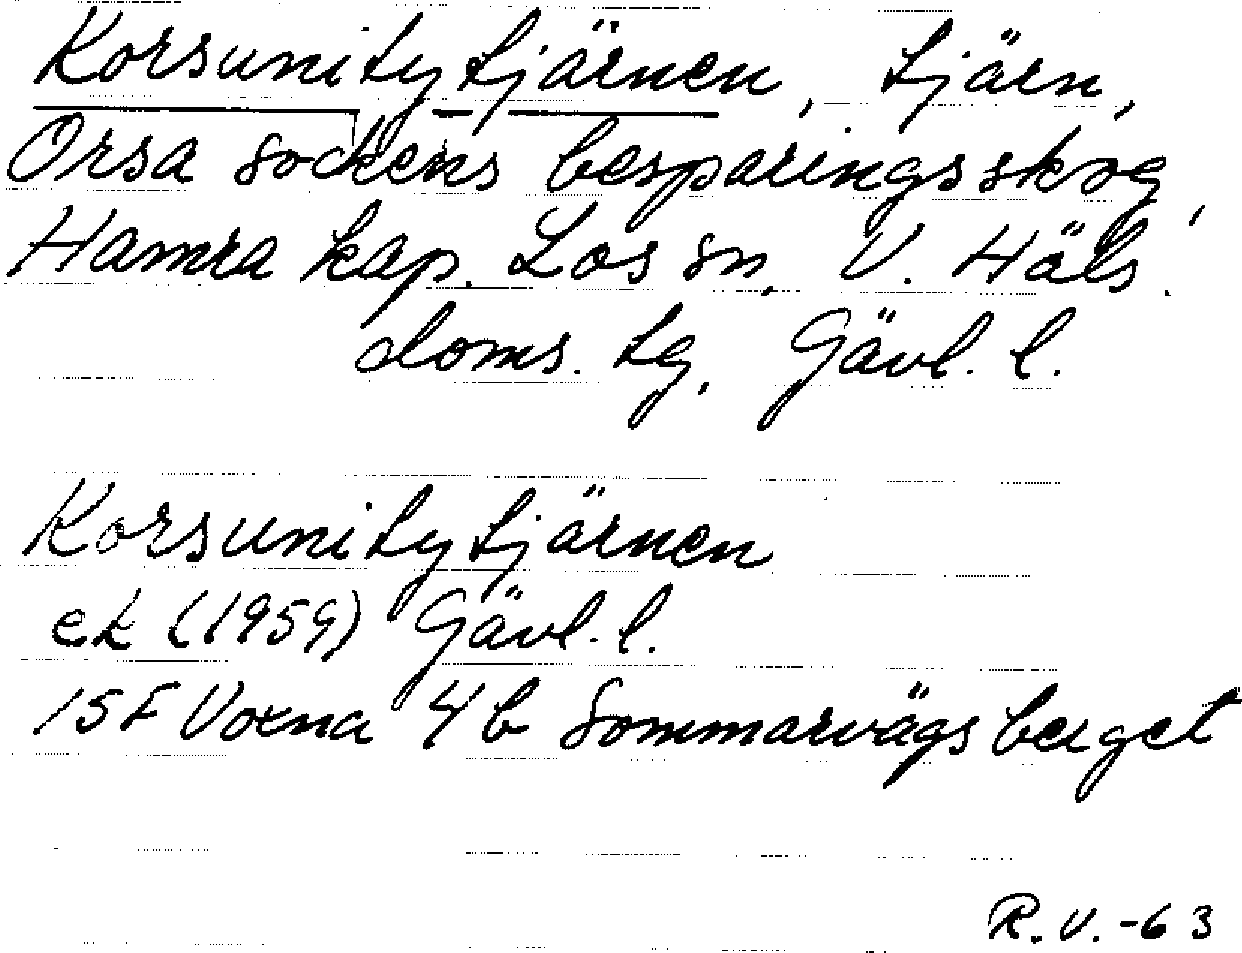 Korsunitytjärnen, tjärn,
Orsa sockens besparingsskog,
Hamra kap. Los sn, V. Häls.
doms. tg, Gävl. l.
Korsunitytjärnen
ek (1959) Gävl. l.
15F Voxna 4b Sommarvägsberget
R.V.-63